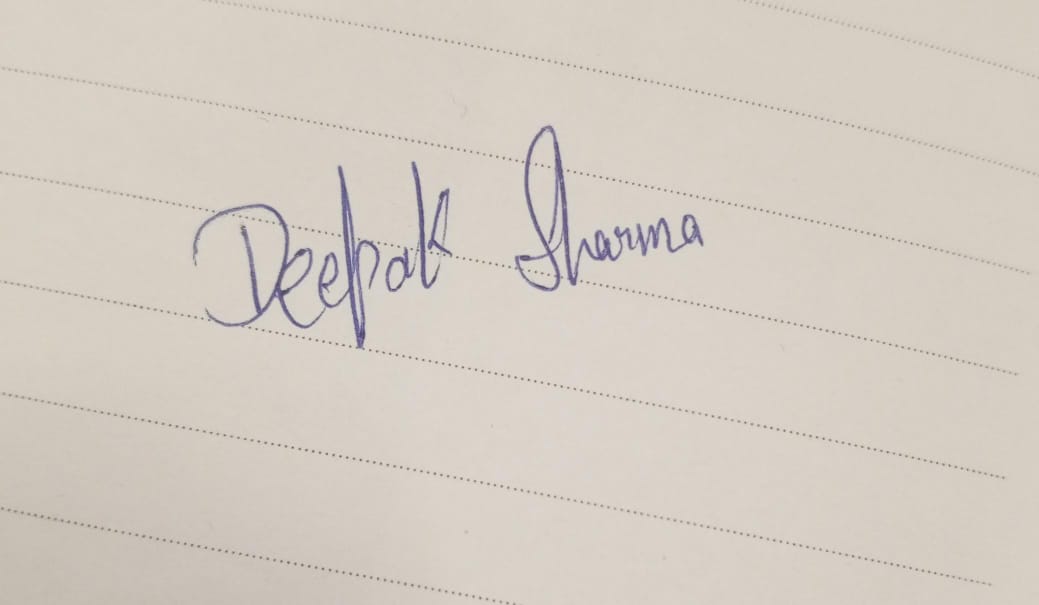 Deepak Sharma